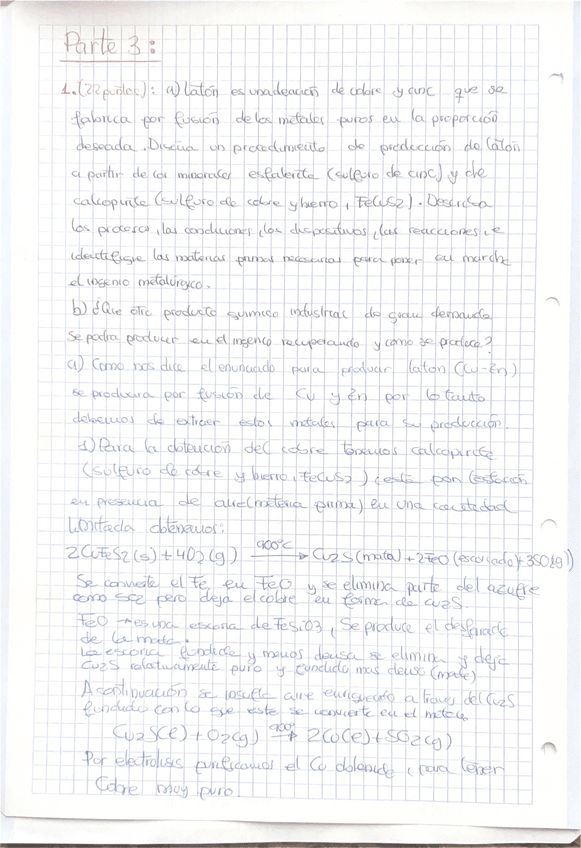 Parte 3:
1.(22 puntos): a) Latón es una aleación de cobre y cinc que se
fabrica por fusión de los metales puros en la proporción
deseada. Diseña un procedimiento de producción de Latón
a partir de los minerales esfalerita (sulfuro de cinc) y de
calcopirita (sulfuro de cobre y hierro, FeCuS2). Describa
los procesos, las condiciones, los dispositivos, las reacciones, e
identifique las materias primas necesarias para poner en marcha
el ingenio metalúrgico.
b) ¿Que otro producto químico industrial de gran demanda
se podra producir en el ingenio recuperando y como se produce?
a) Como nos dice el enunciado para producir latón (Cu-Zn)
se producira por fusión de Cu y Zn por lo tanto
debemos de extraer estos metales para su producción.
1) Para la obtención del cobre tenemos calcopirita
(sulfuro de cobre y hierro, FeCuS2), esta por tostación
en presencia de aire (materia prima) en una cantidad
limitada obtenemos:
2CuFeS2(s) + 4O2(g) 900°C → Cu2S (mata) + 2FeO (escoriado) + 3SO2(g)
Se convierte el Fe en FeO y se elimina parte del azufre
como SO2 pero deja el cobre en forma de Cu2S.
FeO → es una escoria de FeSiO3, Se produce el
de la mata.
La escoria fundida y menos densa se elimina y deja
Cu2S relativamente puro y fundido mas denso (mate)
A continuación se insufla aire enriquecido a traves del Cu2S
fundido con lo que este se convierte en el metal.
Cu2S(l) + O2(g) 900° → 2Cu(l) + SO2(g)
Por electrolisis purificamos el Cu obtenido, para tener
Cobre muy puro.